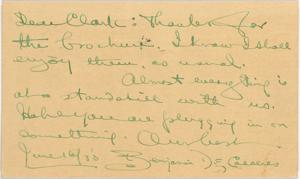 Dear Clark: Thanks for
the brochure. I know I shall
enjoy them, as usual.
Almost everything is
at a standstill with us.
Hope you are plugging in on
something. Our best,
June 16/35 Benjamin De Casseres